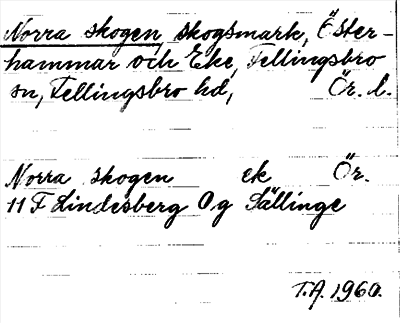 Norra skogen, skogsmark, Öster-
hammar och Eke, Fellingsbro
sn, Fellingsbro hd, Ör. l.
Norra skogen ek Ör.
11 F Lindesberg Og Sällinge
T.A. 1960.